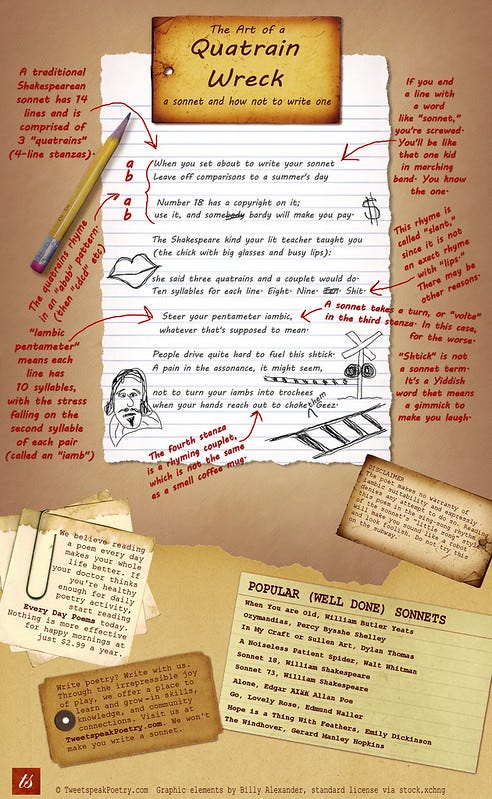 The Art of a
Quatrain
Wreck
a sonnet and how not to write one
A traditional
Shakespearean
sonnet has 14
lines and is
comprised of
3 "quatrains"
(4-line stanzas).
If you end
a line with
a word
like "sonnet,"
you're screwed.
You'll be like
that one kid
in marching
band. You know
the one.
a
b
a
b
When you set about to write your sonnet
Leave off comparisons to a summer's day
Number 18 has a copyright on it;
use it, and somebody bardy will make you pay.
$
The quatrains rhyme
in an "abab" pattern.
(then "cdcd" etc)
This rhyme is
called "slant,"
since it is not
an exact rhyme
with "lips."
There may be
other reasons.
The Shakespeare kind your lit teacher taught you
(the chick with big glasses and busy lips):
she said three quatrains and a couplet would do.
Ten syllables for each line. Eight. Nine. Ten. Shit.
A sonnet takes a turn, or "volte"
in the third stanza. In this case,
for the worse.
Steer your pentameter iambic,
whatever that's supposed to mean.
"Iambic
pentameter"
means each
line has
10 syllables,
with the stress
falling on the
second syllable
of each pair
(called an "iamb")
People drive quite hard to fuel this shtick.
A pain in the assonance, it might seem,
"Shtick" is not
a sonnet term.
It's a Yiddish
word that means
a gimmick to
make you laugh.
not to turn your iambs into trochees
them
when your hands reach out to choke geez.
The fourth stanza
is a rhyming couplet,
which is not the same
as a small coffee mug.
DISCLAIMER
The poet makes no warranty of
iambic suitability and expressly
denies any attempt to do so. Reading
this poem in the sing-song rhythm
of the sonnet's "little song" past
will make you sound like a robot
and look foolish. Do not try this
on the subway.
We believe reading
a poem every day
makes your whole
life better. If
your doctor thinks
you're healthy
enough for daily
poetry activity,
start reading
Every Day Poems today.
Nothing is more effective
for happy mornings at
just $2.99 a year.
POPULAR (WELL DONE) SONNETS
When You are Old, William Butler Yeats
Ozymandias, Percy Bysshe Shelley
In My Craft or Sullen Art, Dylan Thomas
A Noiseless Patient Spider, Walt Whitman
Sonnet 18, William Shakespeare
Sonnet 73, William Shakespeare
Alone, Edgar Allan Poe
Go, Lovely Rose, Edmund Waller
Hope is a Thing With Feathers, Emily Dickinson
The Windhover, Gerard Manley Hopkins
Write poetry? Write with us.
Through the irrepressible joy
of play, we offer a place to
learn and grow—in skills,
knowledge, and community
connections. Visit us at
TweetspeakPoetry.com. We won't
make you write a sonnet.
ts
© TweetspeakPoetry.com Graphic elements by Billy Alexander, standard license via stock.xchng